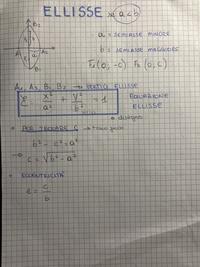 ELLISSE se a < b
B₂
A₁ A₂
B₁
a = SEMIASSE MINORE
b = SEMIASSE MAGGIORE
F₁ (0; -c) F₂ (0; c)
A₁, A₂, B₁, B₂ → VERTICI ELLISSE
E: x²/a² + y²/b² = 1 EQUAZIONE ELLISSE
disegno
• PER TROVARE C → trovo fuochi
b² - c² = a²
→ c = √b² - a²
• ECCENTRICITÀ
e = c/b